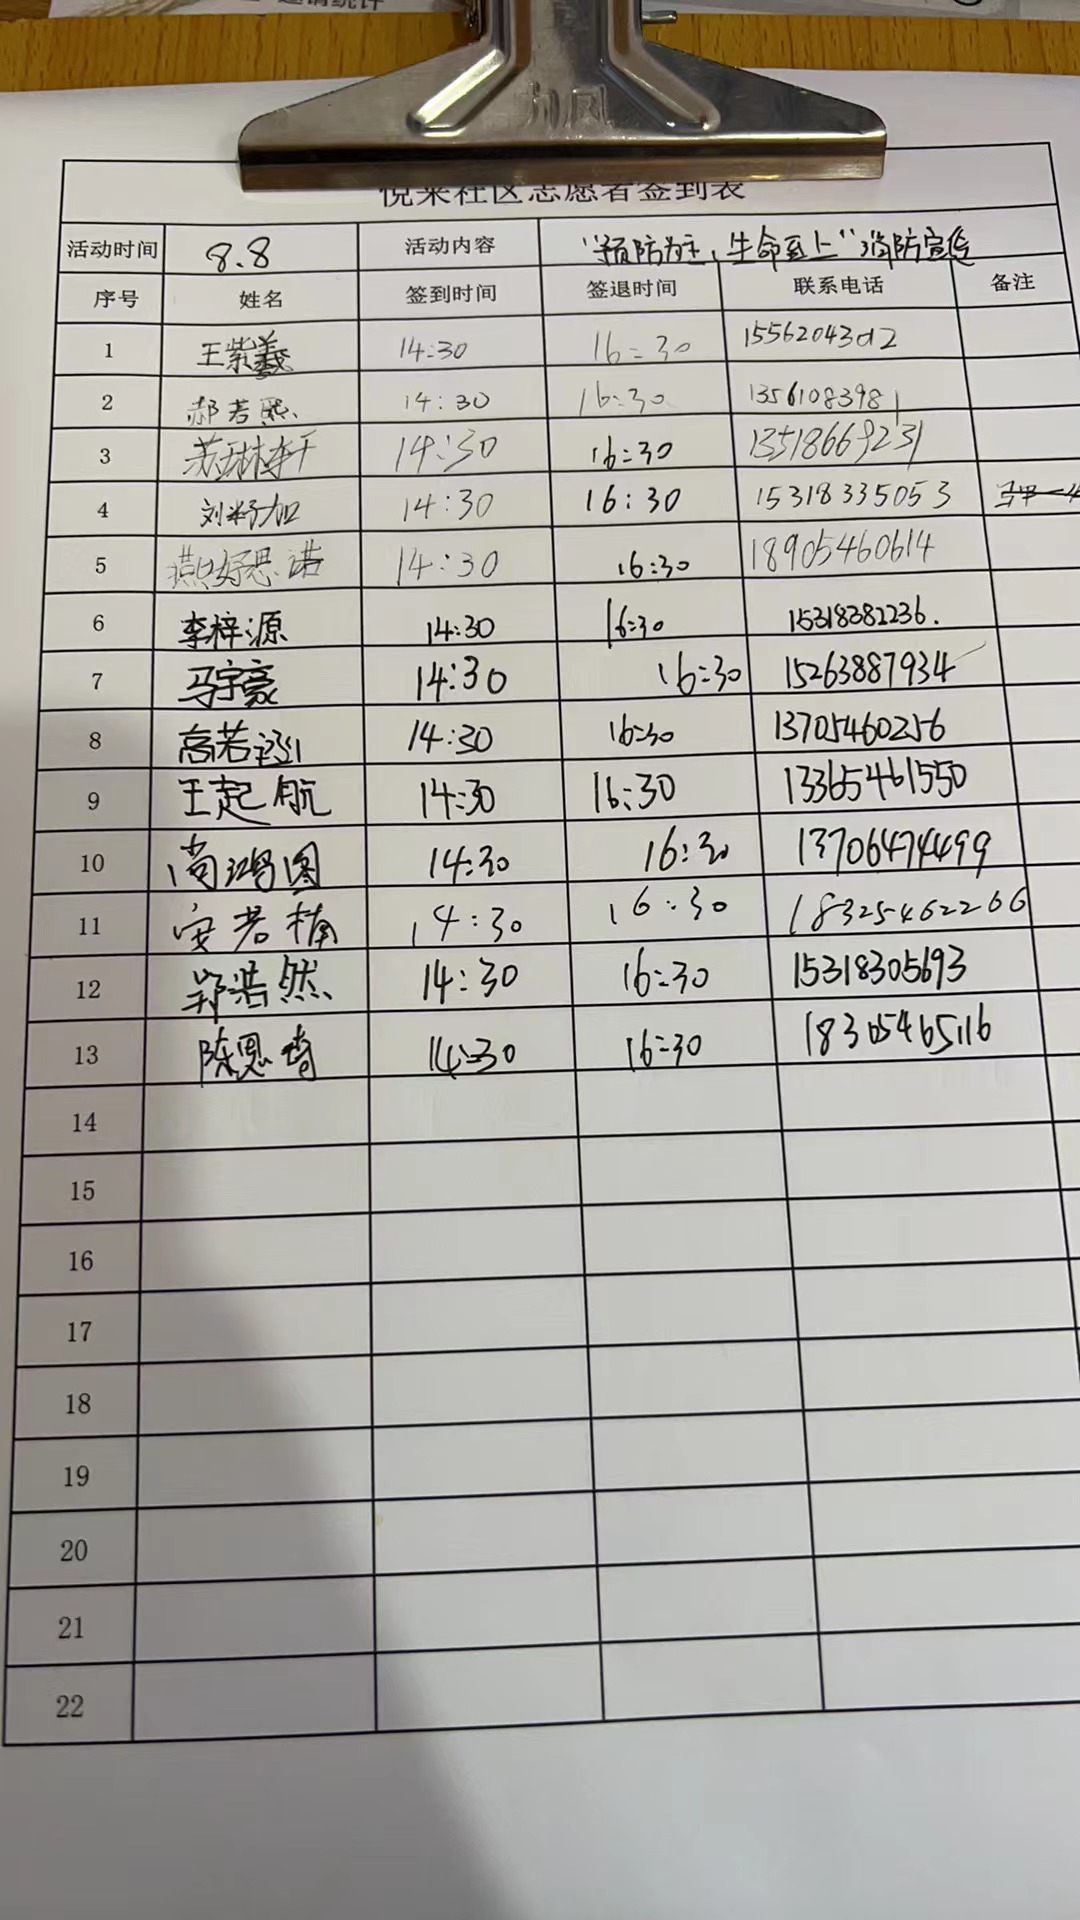 悦来社区志愿者签到表
活动时间 8.8 活动内容 "预防为主，生命至上"消防宣传
序号 姓名 签到时间 签退时间 联系电话 备注
1 王紫羲 14:30 16:30
2 郝若熙 14:30 16:30 13561083981
3 苏琳轩 14:30 16:30 13518669231
4 刘籽加 14:30 16:30 15318335053
5 燕好思诺 14:30 16:30 18905460614
6 李梓源 14:30 16:30 15318382236.
7 马宇豪 14:30 16:30 15263887934
8 高若 14:30 16:30 13705460256
9 王起航 14:30 16:30 13365461550
10 尚鸿图 14:30 16:30 13706474499
11 安若楠 14:30 16:30 18325462266
12 郑浩然 14:30 16:30 15318305693
13 陈恩琦 14:30 16:30 18305465116
14
15
16
17
18
19
20
21
22